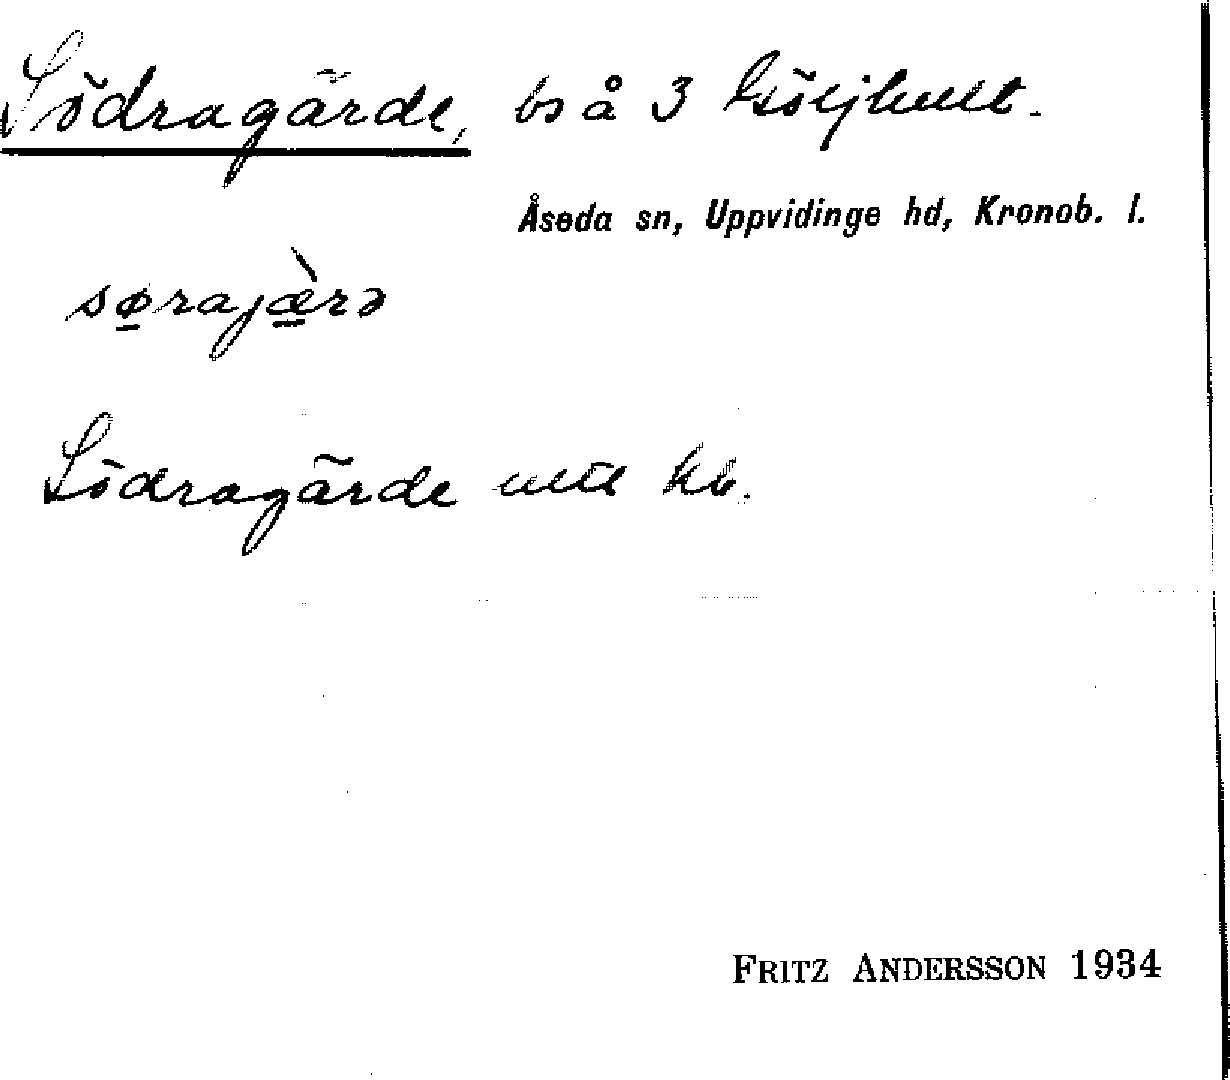 Södragärde, bs å 3 Höljhult.
Åseda sn, Uppvidinge hd, Kronob. l.
sørajæ̀rə
Södragärde
FRITZ ANDERSSON 1934